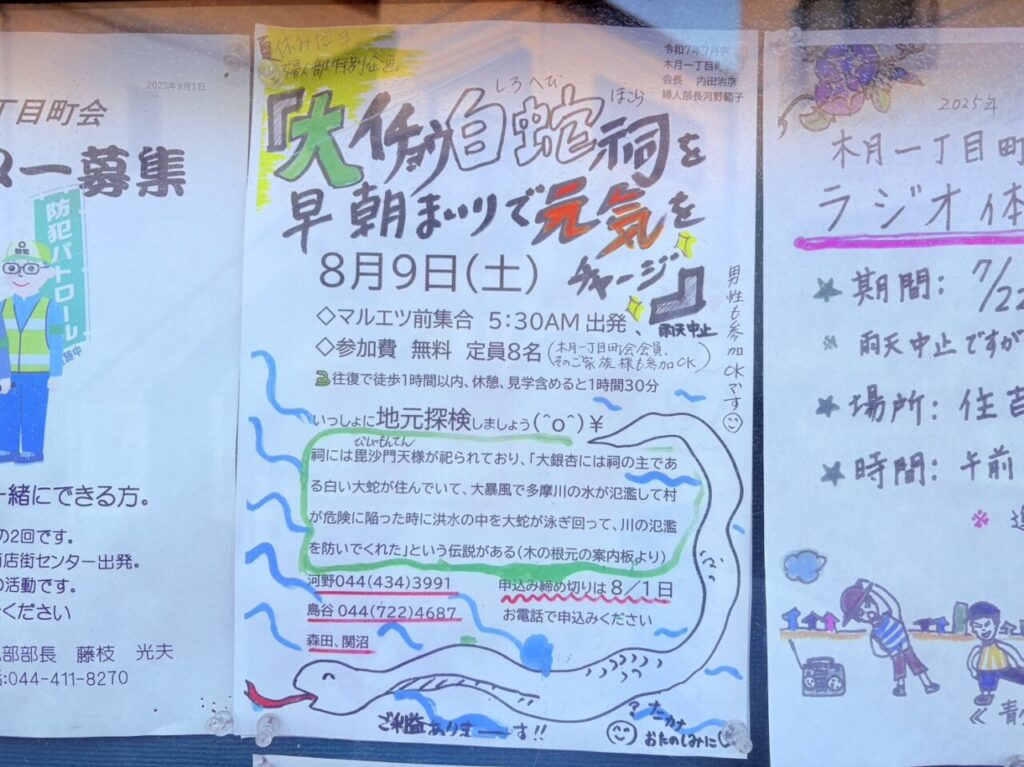 2023年9月1日
丁目町会
ー募集
防犯パトロール
一緒にできる方。
の2回です。
商店街センター出発。
の活動です。
ください
部部長 藤枝 光夫
:044-411-8270
夏休みだヨ
婦人部特別企画
令和7年7月吉
木月一丁目町
会長 内田治彦
婦人部長河野範子
しろへび ほこら
『大イチョウ白蛇祠を
早朝まいりで元気を
チャージ』
8月9日(土)
◇マルエツ前集合 5:30AM 出発、雨天中止
◇参加費 無料 定員8名(木月一丁目町会会員、
そのご家族様も参加OK)
男性も参加OKです
往復で徒歩1時間以内、休憩、見学含めると1時間30分
いっしょに地元探検しましょう(^o^)¥
びしゃもんてん
祠には毘沙門天様が祀られており、「大銀杏には祠の主であ
る白い大蛇が住んでいて、大暴風で多摩川の水が氾濫して村
が危険に陥った時に洪水の中を大蛇が泳ぎ回って、川の氾濫
を防いでくれた」という伝説がある(木の根元の案内板より)
河野044(434)3991 申込み締め切りは8/1日
島谷044(722)4687 お電話で申込みください
森田、関沼
ご利益ありまーす!!
おたのしみに
2025年
木月一丁目町
ラジオ体
★期間: 7/22
※ 雨天中止ですが
★場所: 住吉
★時間: 午前